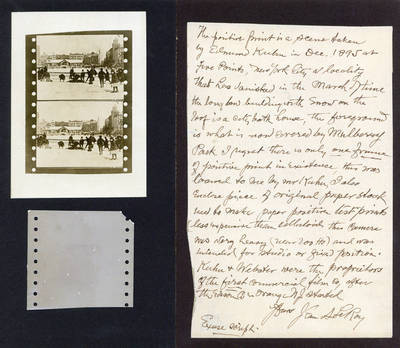 The positive print is a scene taken
by Edmund Kuhn in Dec. 1895 at
Five Points, New York City a locality
that has vanished in the march of time
the long low building with snow on the
roof is a city bath house, the foreground
is what is now covered by Mulberry
Park. I regret there is only one frame
of positive print in existence this was
loaned to me by Mr Kuhn. I also
enclose piece of original paper stock
used to make paper positive test prints
(less expensive than celluloid) this camera
was very heavy (near 200 lbs) and was
intended for studio or fixed position.
Kuhn & Webster were the proprietors
of the first commercial film Co after
the Edison Co in Orange N.J. started
Yours Jean A. Le Roy
Excuse script.